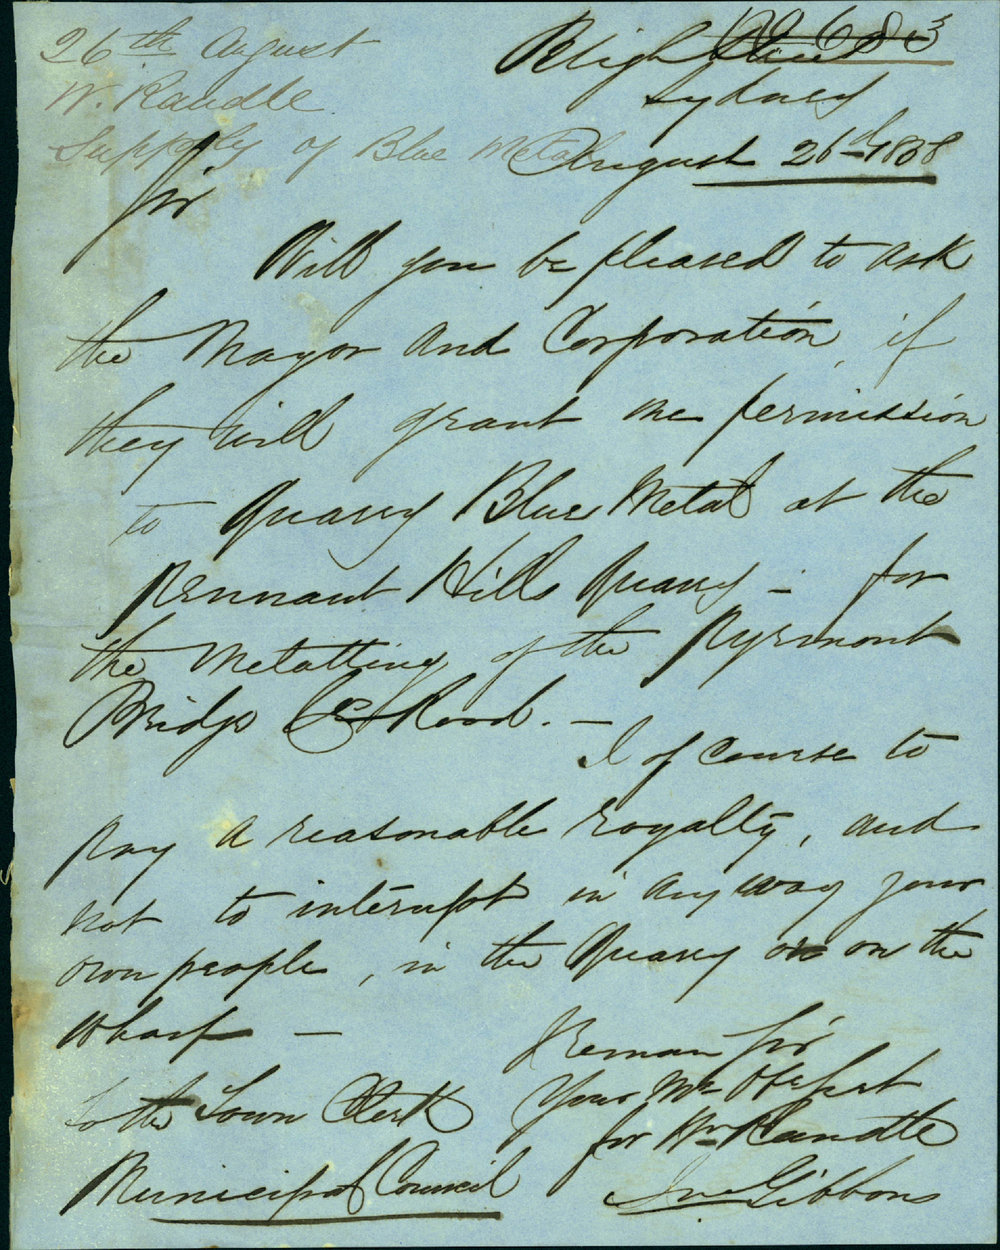 26th August
W. Randle
Supply of Blue Metal
683
Bligh Street
Sydney
August 26th 1858
Sir
Will you be pleased to ask
the Mayor and Corporation, if
they will grant me permission
to Quarry Blue Metal at the
Pennant Hills Quarry - for
the Metalling of the Pyrmont
Bridge Co Road. -
I of course to
pay a reasonable royalty, and
not to interupt in any way your
own people, in the Quarry or on the
Wharf -
I Remain Sir
Your Mo Obt
for Wm Randle
Jno Gibbons
To the Town Clerk
Municipal Council